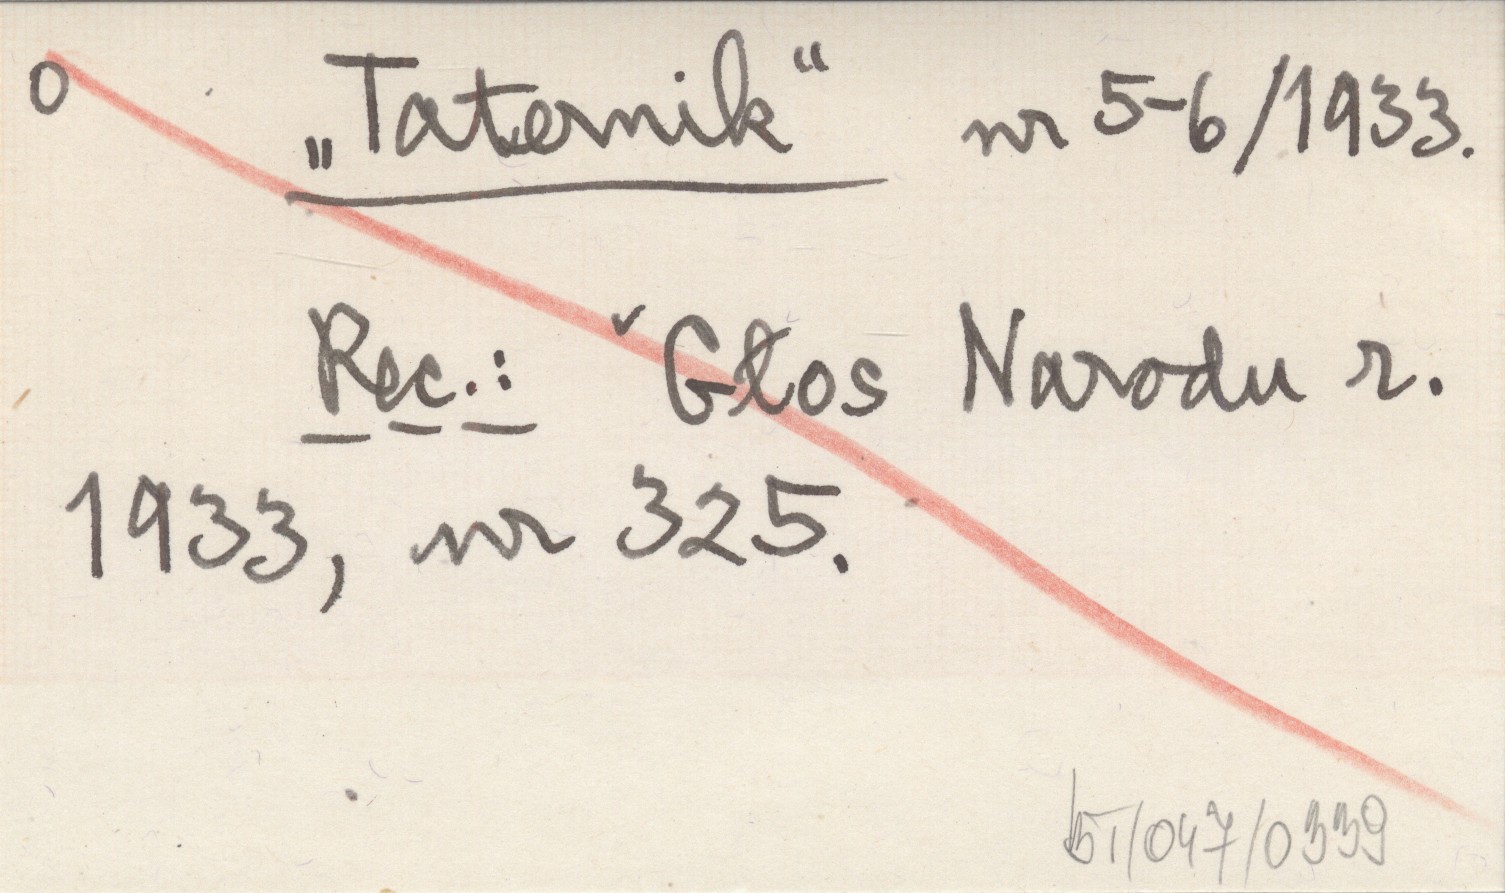 0 „Taternik“ nr 5-6/1933.
Rec.: ˇGłos Narodu r.
1933, nr 325.
bT/047/0339